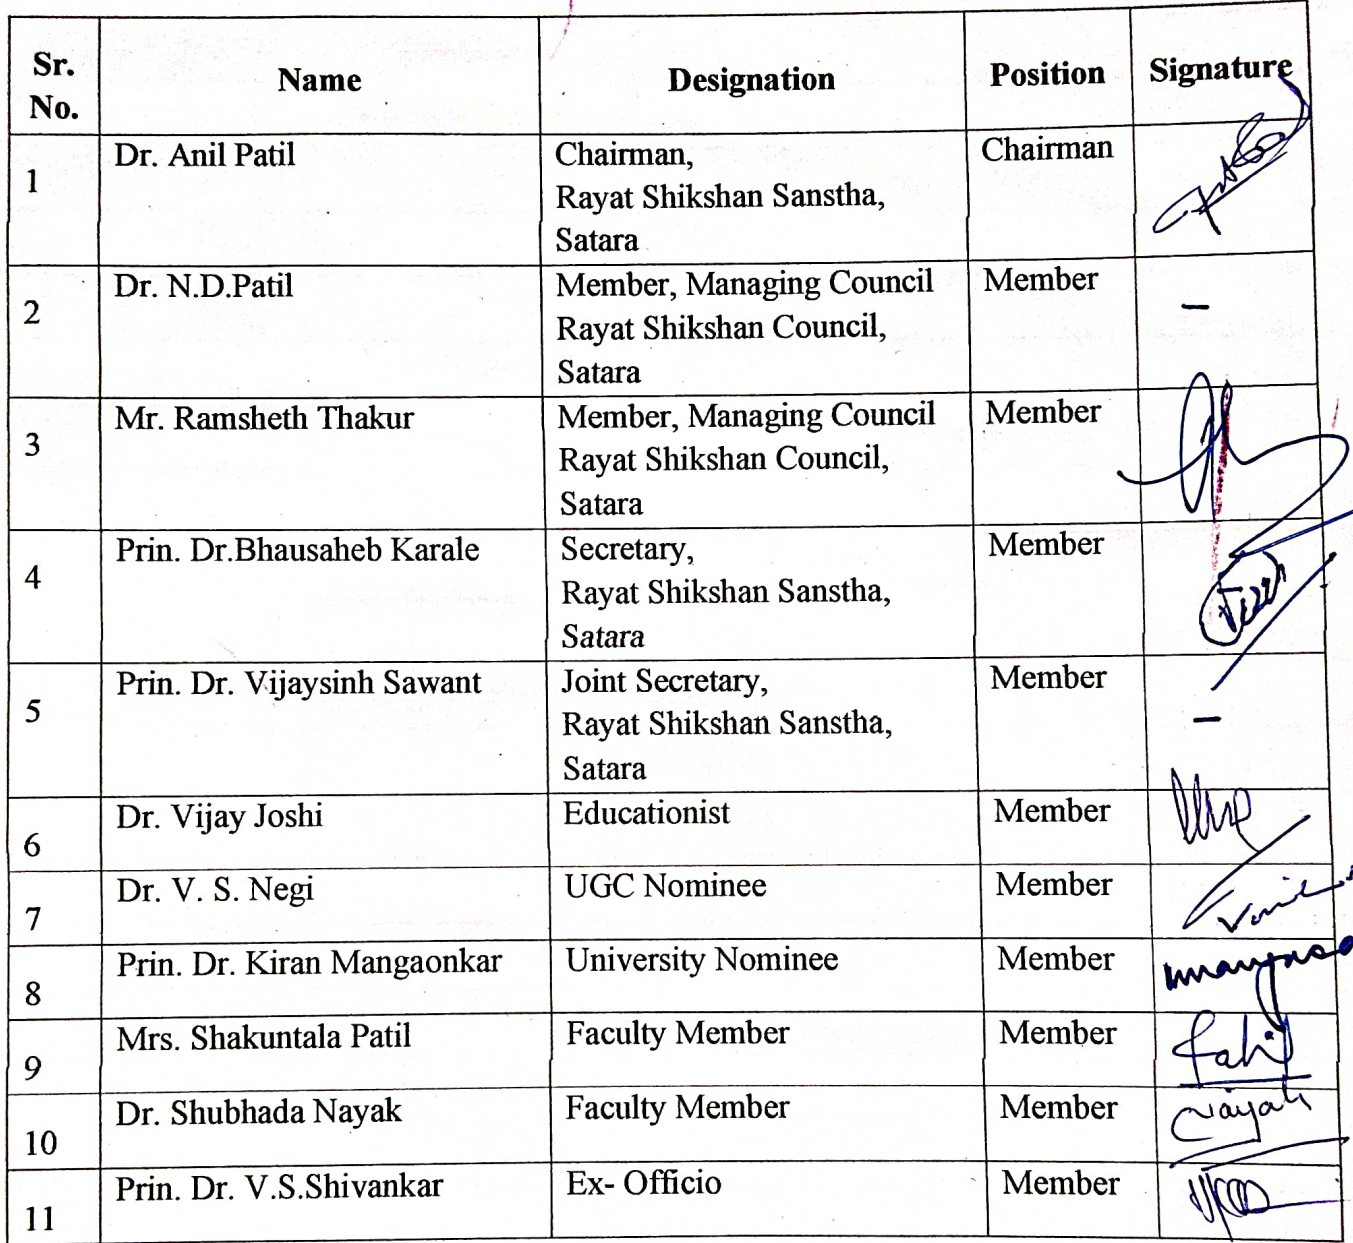 Sr. No. Name Designation Position Signature
1 Dr. Anil Patil Chairman, Chairman
Rayat Shikshan Sanstha,
Satara
2 Dr. N.D.Patil Member, Managing Council Member –
Rayat Shikshan Council,
Satara
3 Mr. Ramsheth Thakur Member, Managing Council Member
Rayat Shikshan Council,
Satara
4 Prin. Dr.Bhausaheb Karale Secretary, Member
Rayat Shikshan Sanstha,
Satara
5 Prin. Dr. Vijaysinh Sawant Joint Secretary, Member –
Rayat Shikshan Sanstha,
Satara
6 Dr. Vijay Joshi Educationist Member
7 Dr. V. S. Negi UGC Nominee Member
8 Prin. Dr. Kiran Mangaonkar University Nominee Member
9 Mrs. Shakuntala Patil Faculty Member Member
10 Dr. Shubhada Nayak Faculty Member Member
11 Prin. Dr. V.S.Shivankar Ex- Officio Member